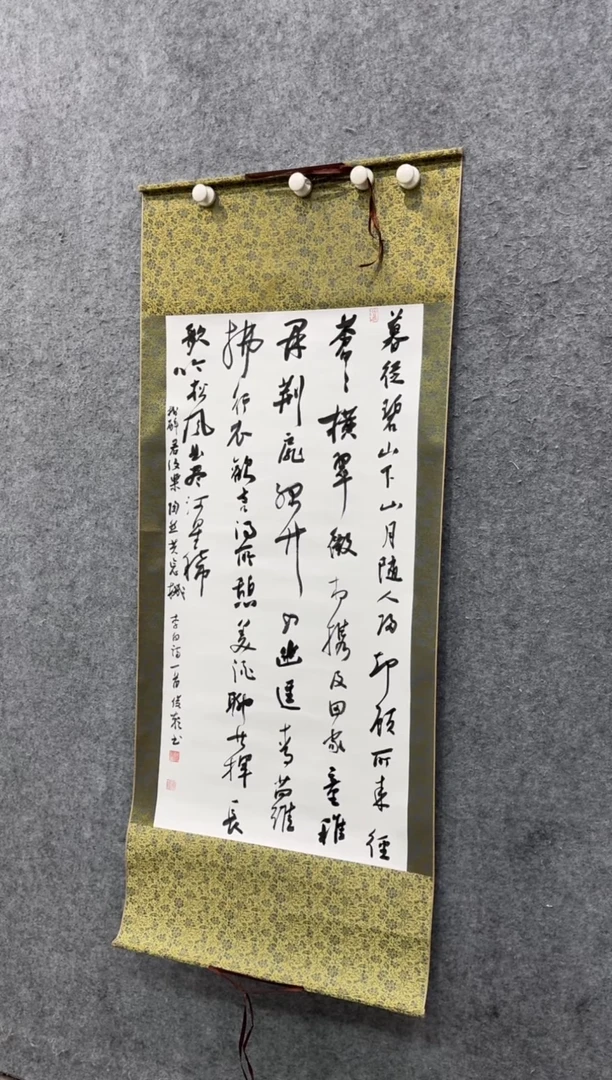 暮從碧山下山月随人歸却顧所来徑
蒼蒼橫翠微相攜及田家童稚
开荊扉緑竹入幽逕青蘿
拂行衣歡言得所憩美酒聊共揮長
歌吟松風曲盡河星稀
我醉君復樂陶然共忘機 李白詩一首 書